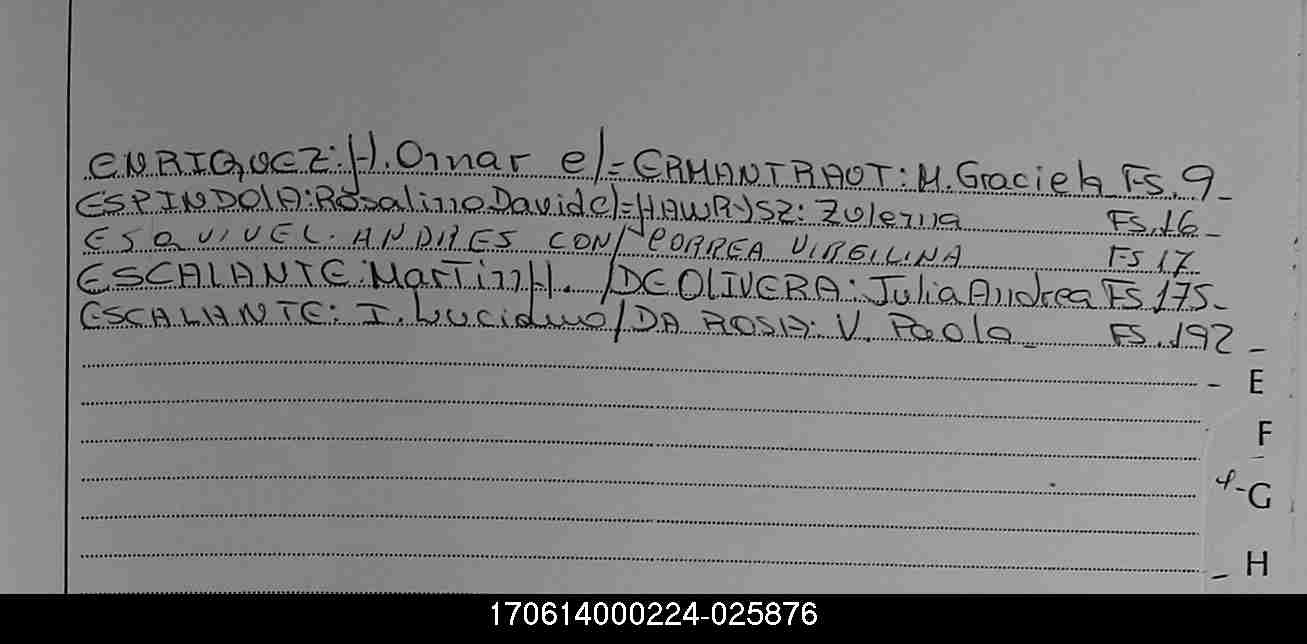 ENRIQUEZ: H. Omar e/= ERMANTRAOT: M. Graciela Fs. 9_
ESPINDOlA: Rosalino David e/= HAWRYSZ: Zulema Fs. 16_
ESQUIVEL. ANDRES CON/ CORREA VIRGILINA FS 17
ESCALANTE: Martin H. /DE OLIVERA: Julia Andrea Fs 175_
ESCALANTE: I. Luciano/DA ROSA: V. Paola_ FS. 192_
E
F
G
H
170614000224-025876